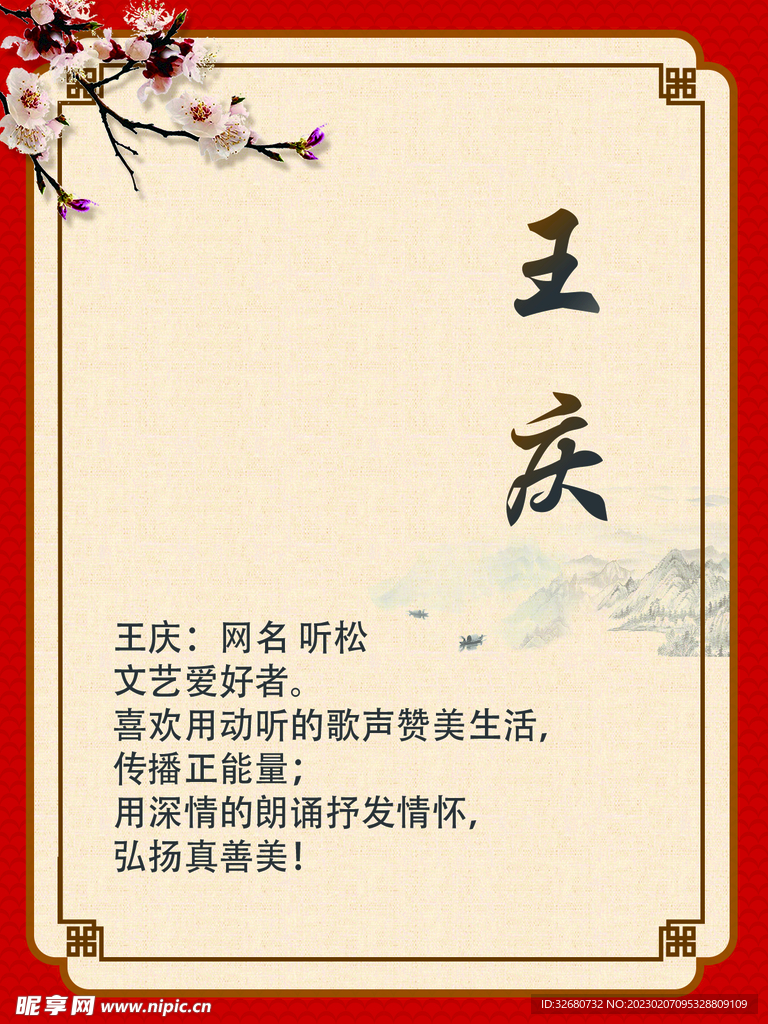 王
庆
王庆：网名 听松
文艺爱好者。
喜欢用动听的歌声赞美生活，
传播正能量；
用深情的朗诵抒发情怀，
弘扬真善美！
昵享网 www.nipic.cn
ID:32680732 NO:20230207095328809109